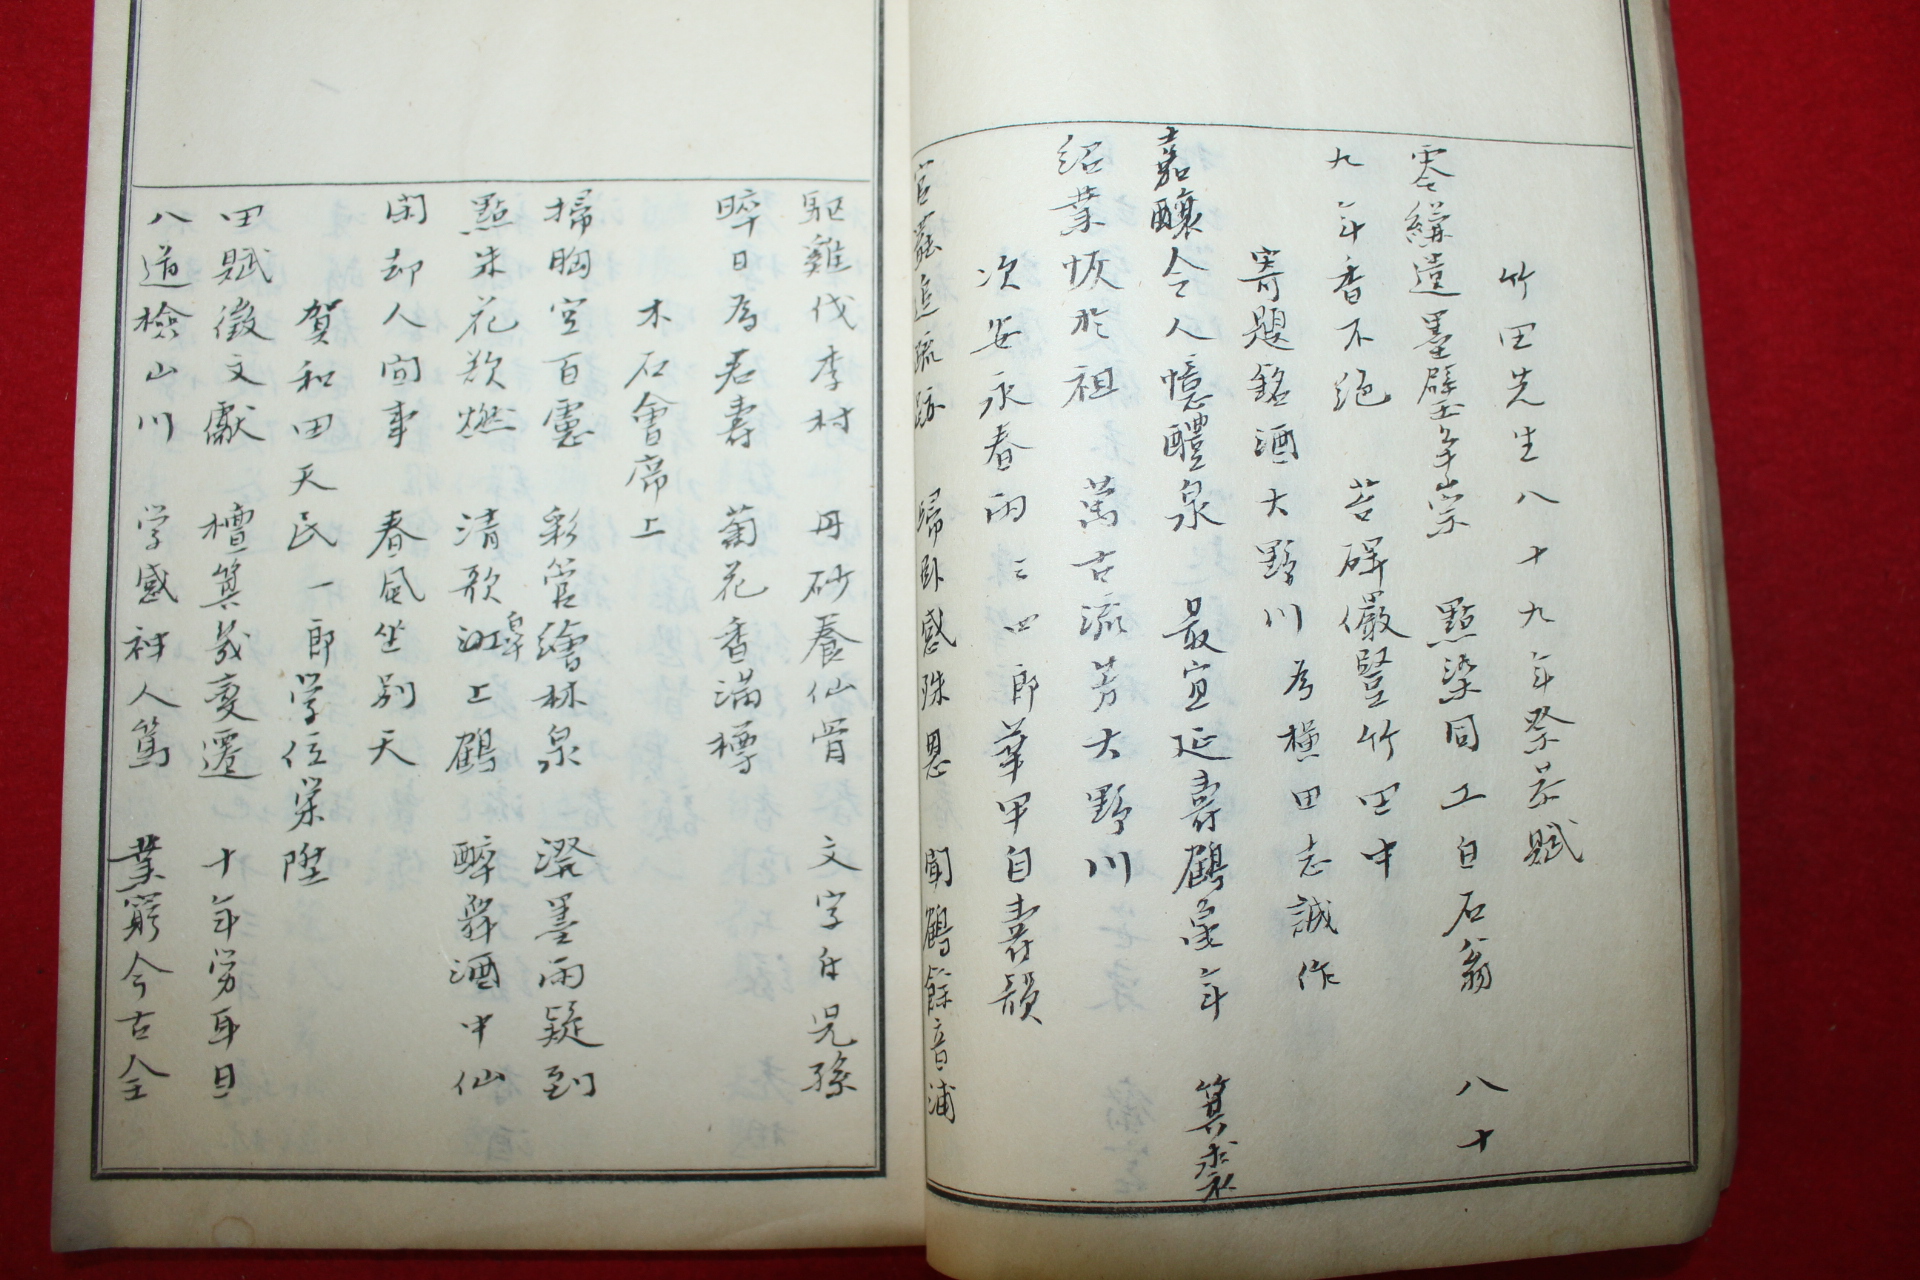 竹田先生八十九年祭恭賦
零縑遺墨壁年崇　點染同工白石翁　八十
九年香不絶　苔碑儼豎竹田中
寄題銘酒大野川　為橫田志誠作
嘉釀令人憶醴泉　最宜延壽鶴龜年　箕裘
紹業恢於祖　萬古流芳大野川
次安永春雨三四郎華甲自壽韻
官　追疏　歸臥感殊恩　聞鶴餘音浦
驅雞伐李村　丹砂養仙骨　文字付兒孫
晬日為君壽　菊花香滿樽
木石會席上
掃胸空百慮　彩管繪林泉　潑墨雨疑到
點朱花欲燃　清歌江上鶴　醉舞酒中仙
閑却人間事　春風坐別天
賀和田天民一郎学位栄陞
田賦徵文獻　檀箕幾變遷　十年勞耳目
八道檢山川　学感神人篤　業窮今古全